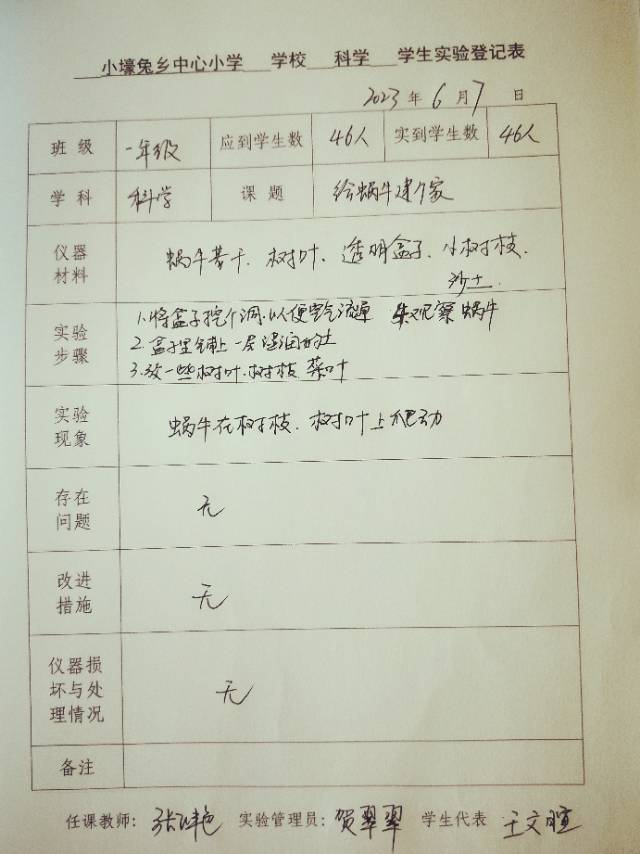 小壕兔乡中心小学 学校 科学 学生实验登记表
2023 年 6 月 7 日
班 级 一年级 应到学生数 46人 实到学生数 46人
学 科 科学 课 题 给蜗牛建个家
仪器
材料
蜗牛若干、树叶、透明盒子、小树枝、
沙土.
实验
步骤
1.将盒子挖个洞.以便空气流通 观察蜗牛
2.盒子里铺上一层湿润的土
3.放一些树叶.树枝 菜叶
实验
现象
蜗牛在树枝、树叶上爬动
存在
问题
无
改进
措施
无
仪器损
坏与处
理情况
无
备注
任课教师: 张 艳 实验管理员: 贺翠翠 学生代表 王文暄